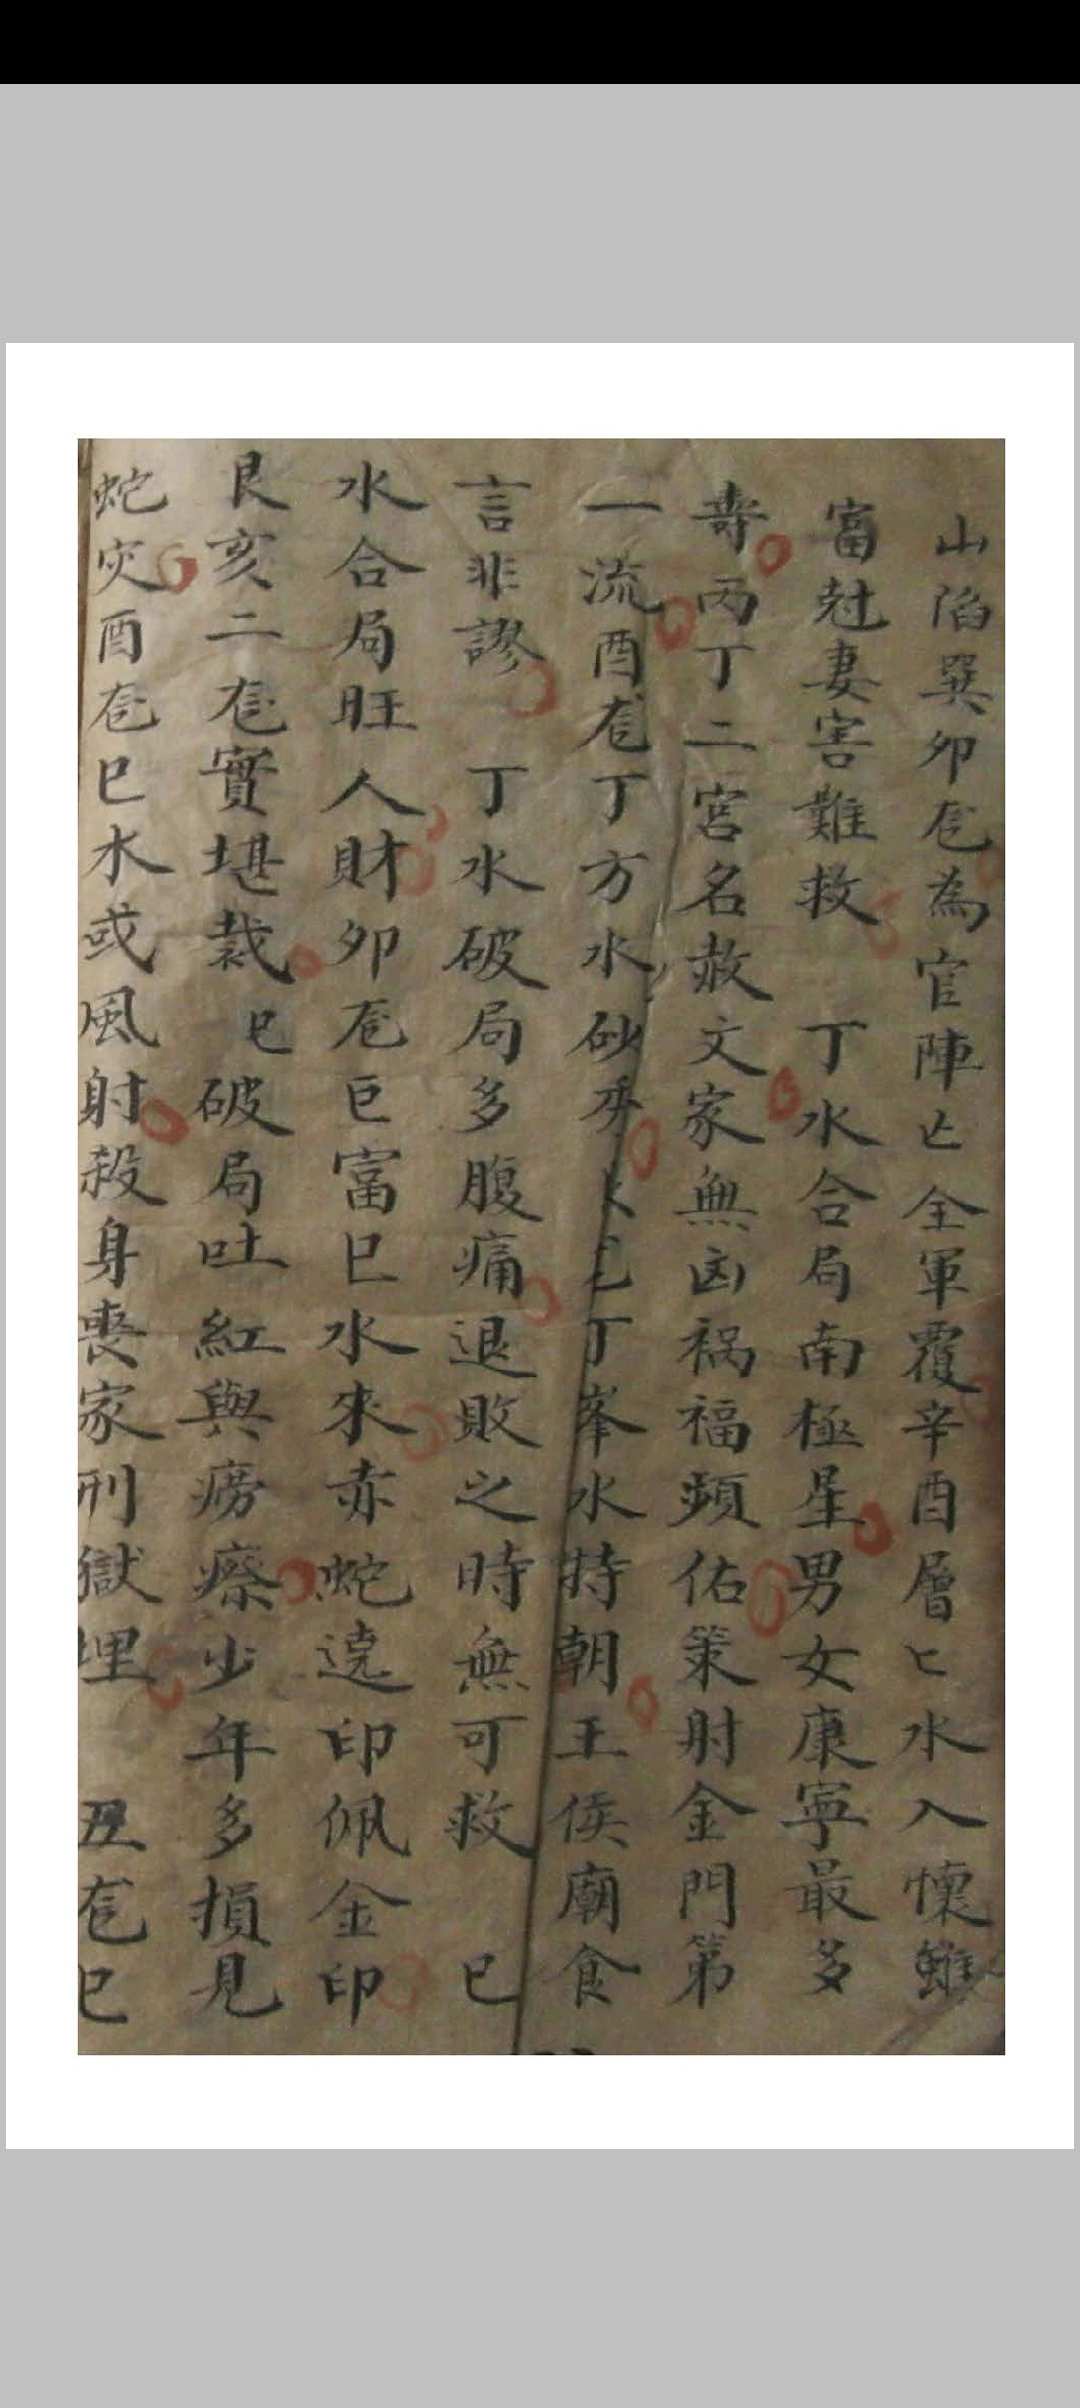 山陷巽卯庀為官陣亡全軍覆辛酉層匕水入懷雖
富尅妻害難救 丁水合局南極星男女康寧最多
壽丙丁二宮名赦文家無凶禍福頻佑策射金門第
一流酉庀丁方水砂秀 丁峯水特朝王侯廟食
言非謬 丁水破局多腹痛退敗之時無可救 巳
水合局旺人財卯庀巨富巳水來赤蛇遶印佩金印
艮亥二庀實堪裁巳破局吐紅與癆瘵少年多損見
蛇灾酉庀巳水或風射殺身喪家刑獄埋 丑庀巳